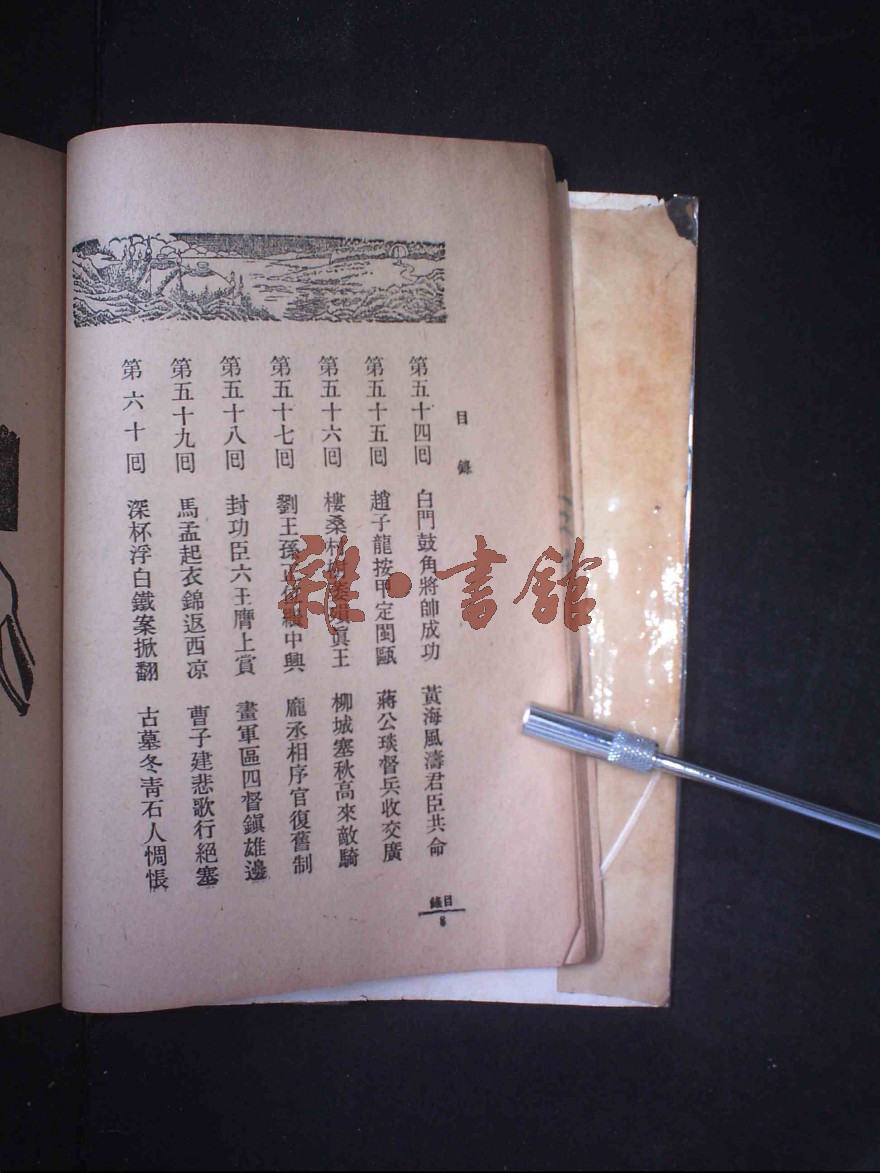 目錄
第五十四回 白門鼓角將帥成功 黃海風濤君臣共命
第五十五回 趙子龍按甲定閩甌 蔣公琰督兵收交廣
第五十六回 樓桑村眞王 柳城塞秋高來敵騎
第五十七回 劉王孫正位續中興 龐丞相序官復舊制
第五十八回 封功臣六王膺上賞 畫軍區四督鎮雄邊
第五十九回 馬孟起衣錦返西凉 曹子建悲歌行絕塞
第六十回 深杯浮白鐵案掀翻 古墓冬靑石人惆悵
目錄
8
雜·書館